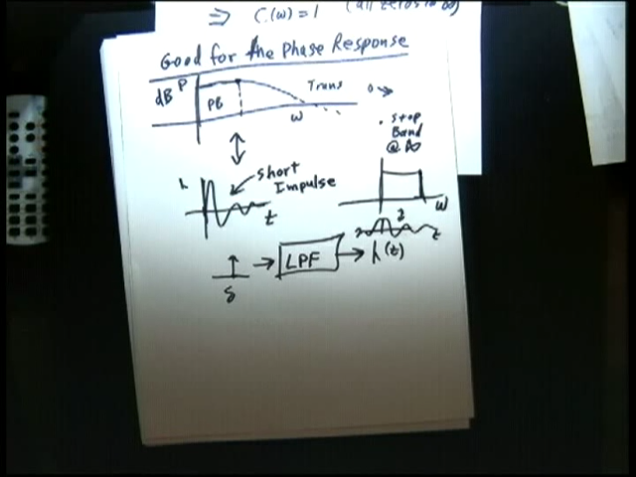 ⇒ C(ω) = 1 (all zeros in ∞)
Good for the Phase Response
dB
PB
Trans
ω
Stop
Band
@ ∞
h
short
Impulse
t
ω
t
δ → LPF → h(t)